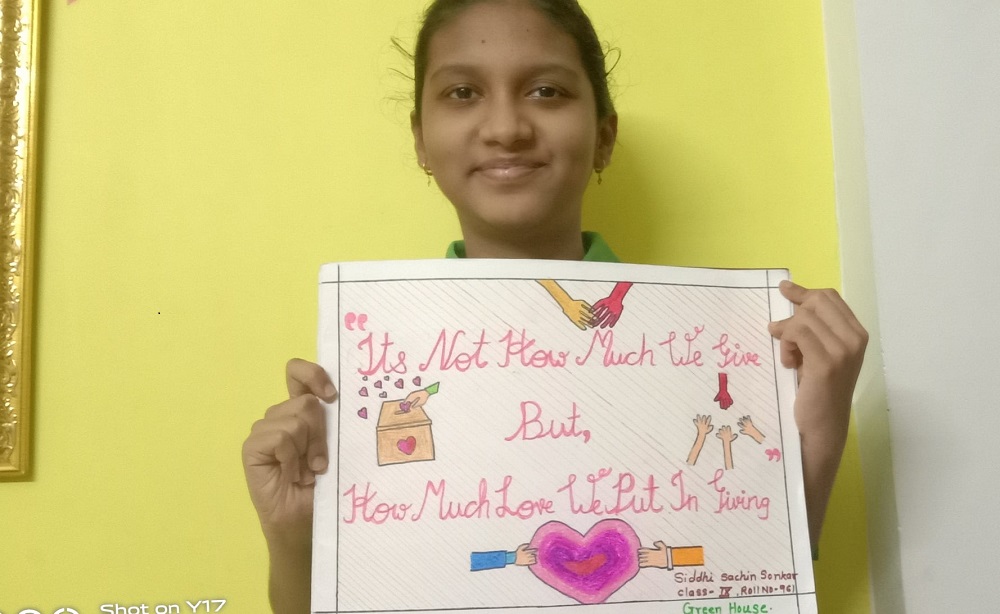 “ Its Not How Much We Give
But,
How Much Love We Put In Giving ”
Siddhi Sachin Sonkar
class- IX, Roll No-961
Green House.
Shot on Y17